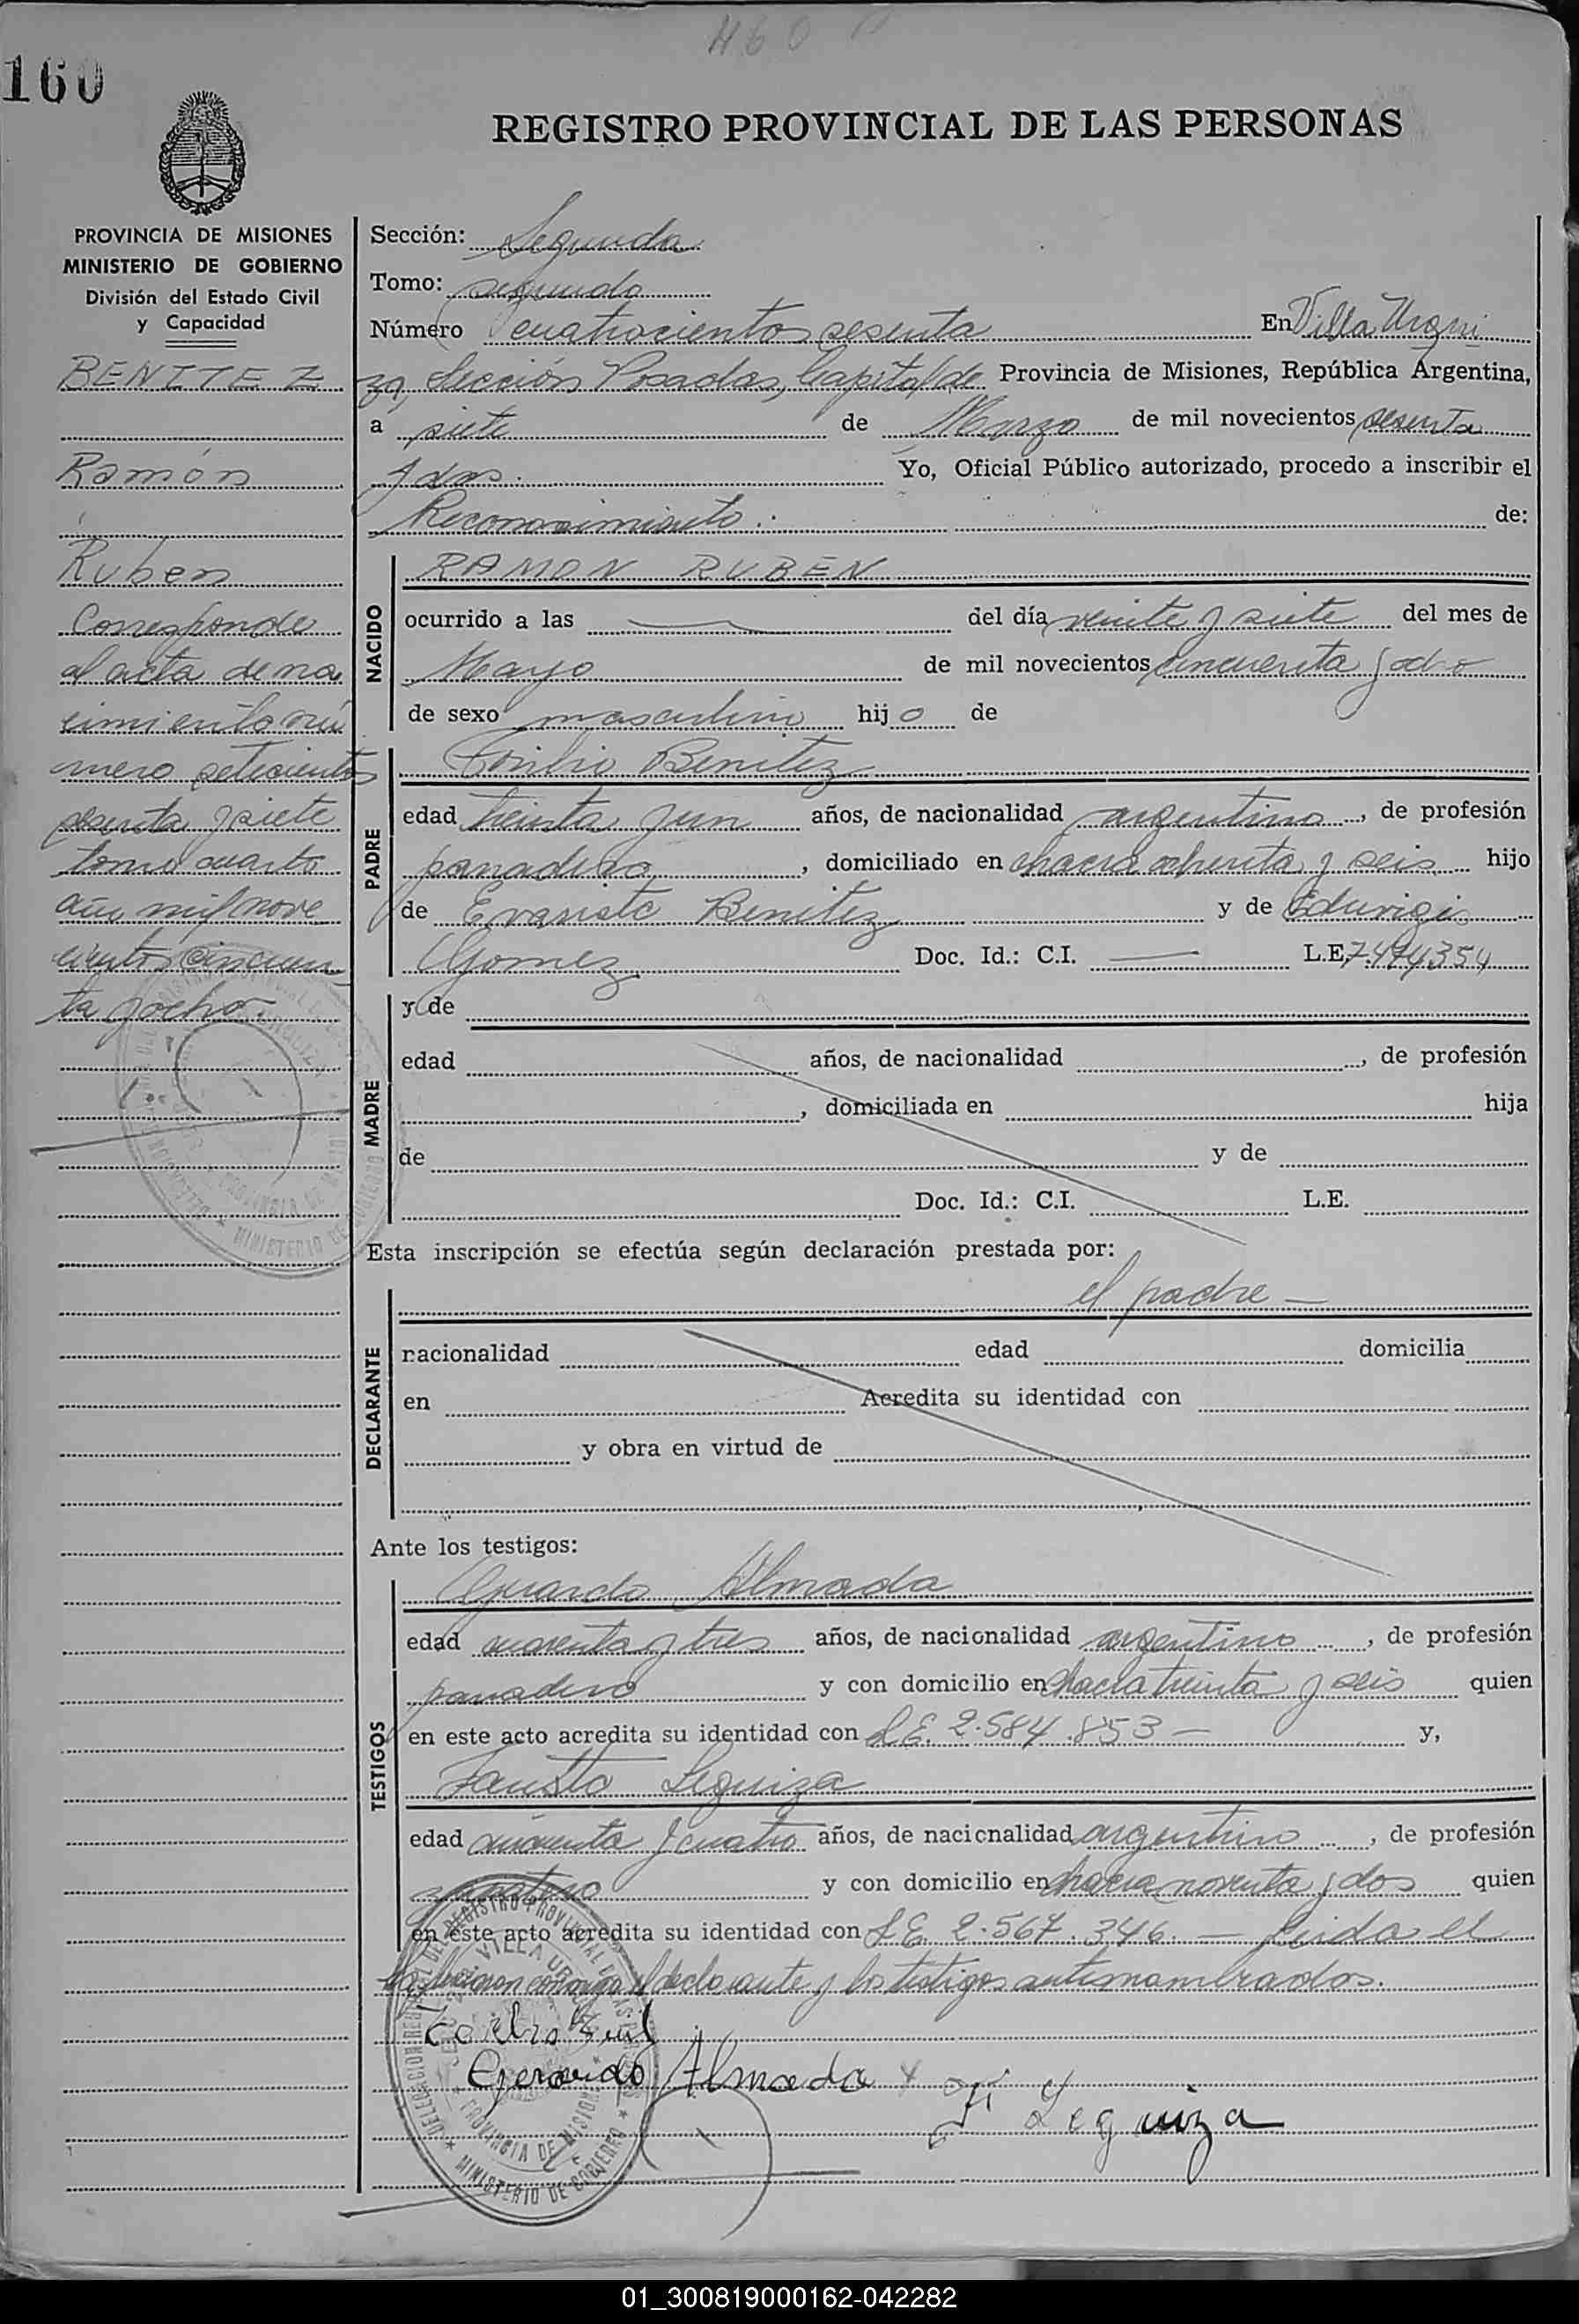 460
160
REGISTRO PROVINCIAL DE LAS PERSONAS
PROVINCIA DE MISIONES
MINISTERIO DE GOBIERNO
División del Estado Civil
y Capacidad
BENITEZ
Ramón
Ruben
Corresponde
al acta de na
cimiento nú
mero setecientos
sesenta y siete
tomo cuarto
año mil nove
cientos cincuen
ta y ocho.
Sección: Segunda
Tomo: segundo
Número cuatrocientos sesenta En Villa Urqui
za, Sección Posadas, Capital de Provincia de Misiones, República Argentina,
a siete de Marzo de mil novecientos sesenta
y dos. Yo, Oficial Público autorizado, procedo a inscribir el
Reconocimiento. de:
NACIDO
RAMON RUBEN
ocurrido a las del día veinte y siete del mes de
Mayo de mil novecientos cincuenta y ocho
de sexo masculino hijo de
PADRE
Benitez
edad treinta y un años, de nacionalidad argentino, de profesión
panadero, domiciliado en chacra ochenta y seis hijo
de Evaristo Benitez y de Eduvigis
Gomez Doc. Id.: C.I. L.E. 7.474.354
MADRE
y de
edad años, de nacionalidad , de profesión
, domiciliada en hija
de y de
Doc. Id.: C.I. L.E.
Esta inscripción se efectúa según declaración prestada por:
DECLARANTE
el padre —
nacionalidad edad domicilia
en Acredita su identidad con
y obra en virtud de
Ante los testigos:
TESTIGOS
Almada
edad cuarenta y tres años, de nacionalidad argentino, de profesión
panadero y con domicilio en chacra treinta y seis quien
en este acto acredita su identidad con L.E. 2.584.853 — y,
Fausto Leguiza
edad cuarenta y cuatro años, de nacionalidad argentino, de profesión
y con domicilio en chacra noventa y dos quien
en este acto acredita su identidad con L.E. 2.567.346. — Leida el
conmigo el declarante y los testigos antes nombrados.
Almada
Leguiza
01_300819000162-042282